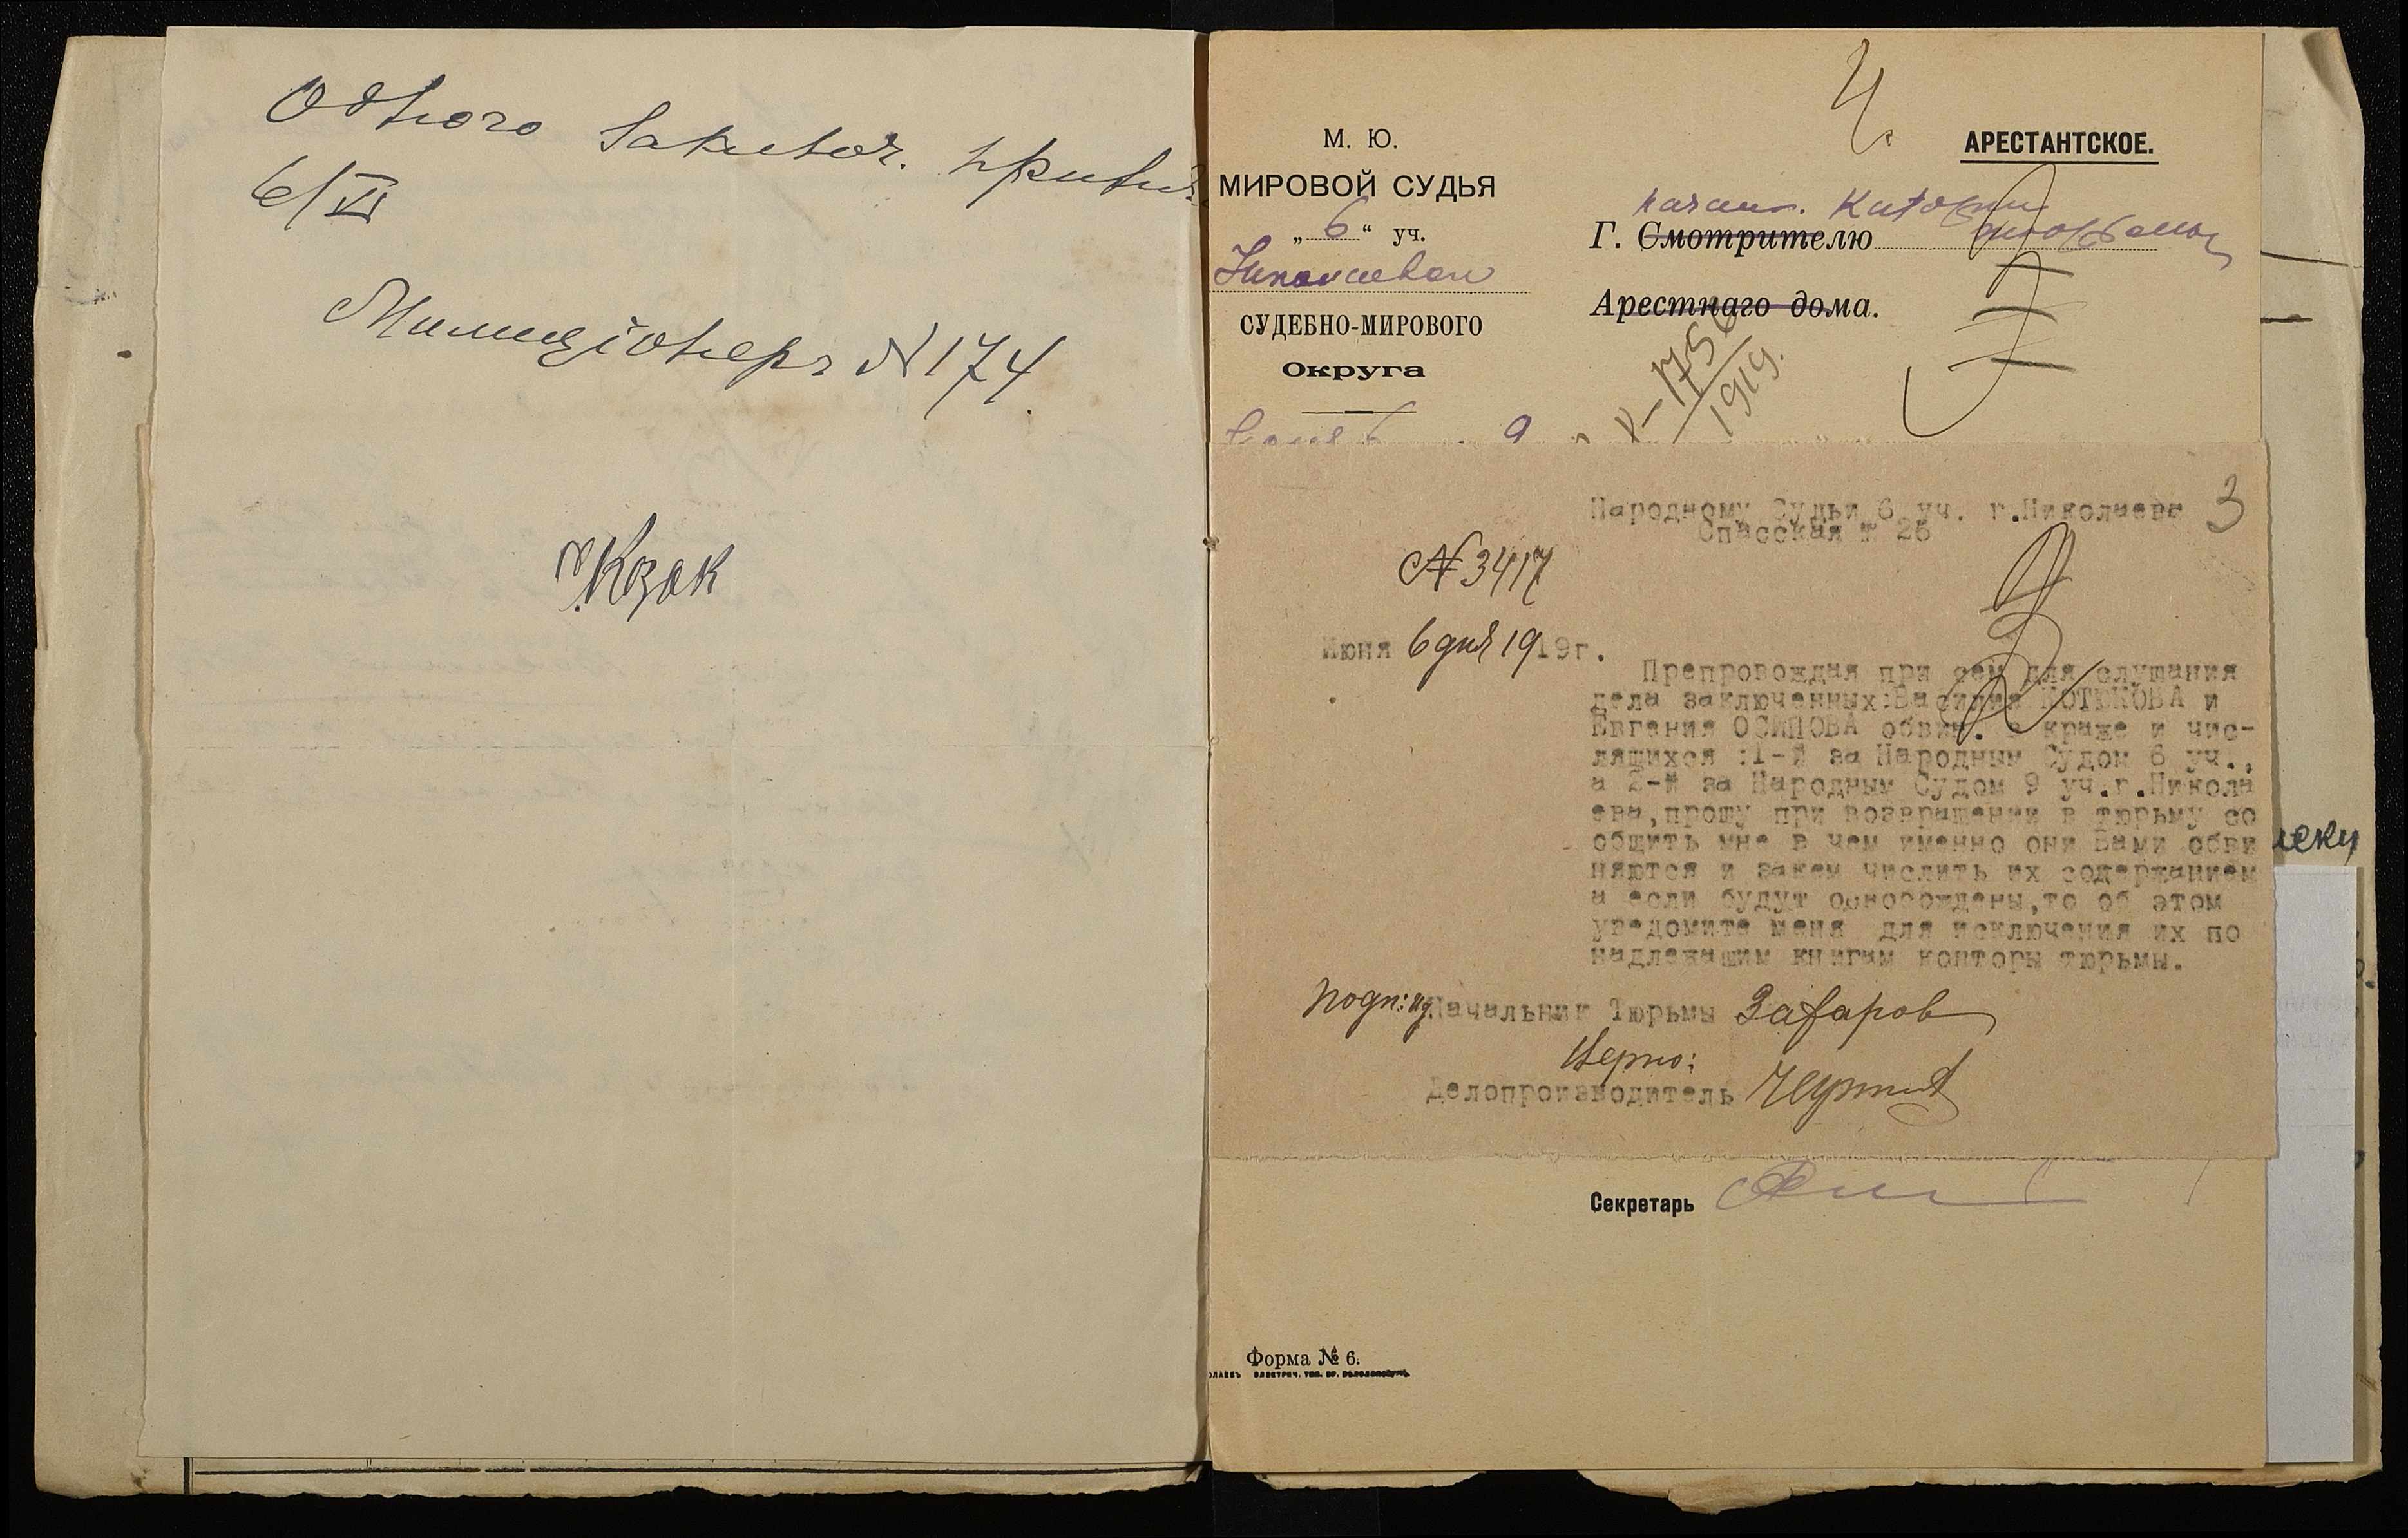 Одного заключ. принял
6/VI
Милиціонеръ N174
Козак
4.
М. Ю.
МИРОВОЙ СУДЬЯ
„6“ уч.
Николаевск
СУДЕБНО-МИРОВОГО
Округа
АРЕСТАНТСКОЕ.
Г. Смотрителю
Арестнаго дома.
1756
1919.
3
Народному Судьи 6 уч. г.Николаева
Спасская № 26
№ 3417
Июня 6 дня 1919г.
Препровождая при сем для слушания
дела заключенных:Василия КОТЮКОВА и
Евгения ОСИПОВА обвин. в краже и чис-
лящихся :1-й за Народным Судом 6 уч.,
а 2-й за Народным Судом 9 уч.г.Никола
ева,прошу при возвращении в тюрьму со
общить мне в чем именно они Вами обви
няются и закем числить их содержанием
а если будут освобождены,то об этом
уведомите меня для исключения их по
надлежащим книгам конторы тюрьмы.
подп: ид Начальник Тюрьмы Зафаров
Верно:
Делопроизводитель
Секретарь
Форма № 6.